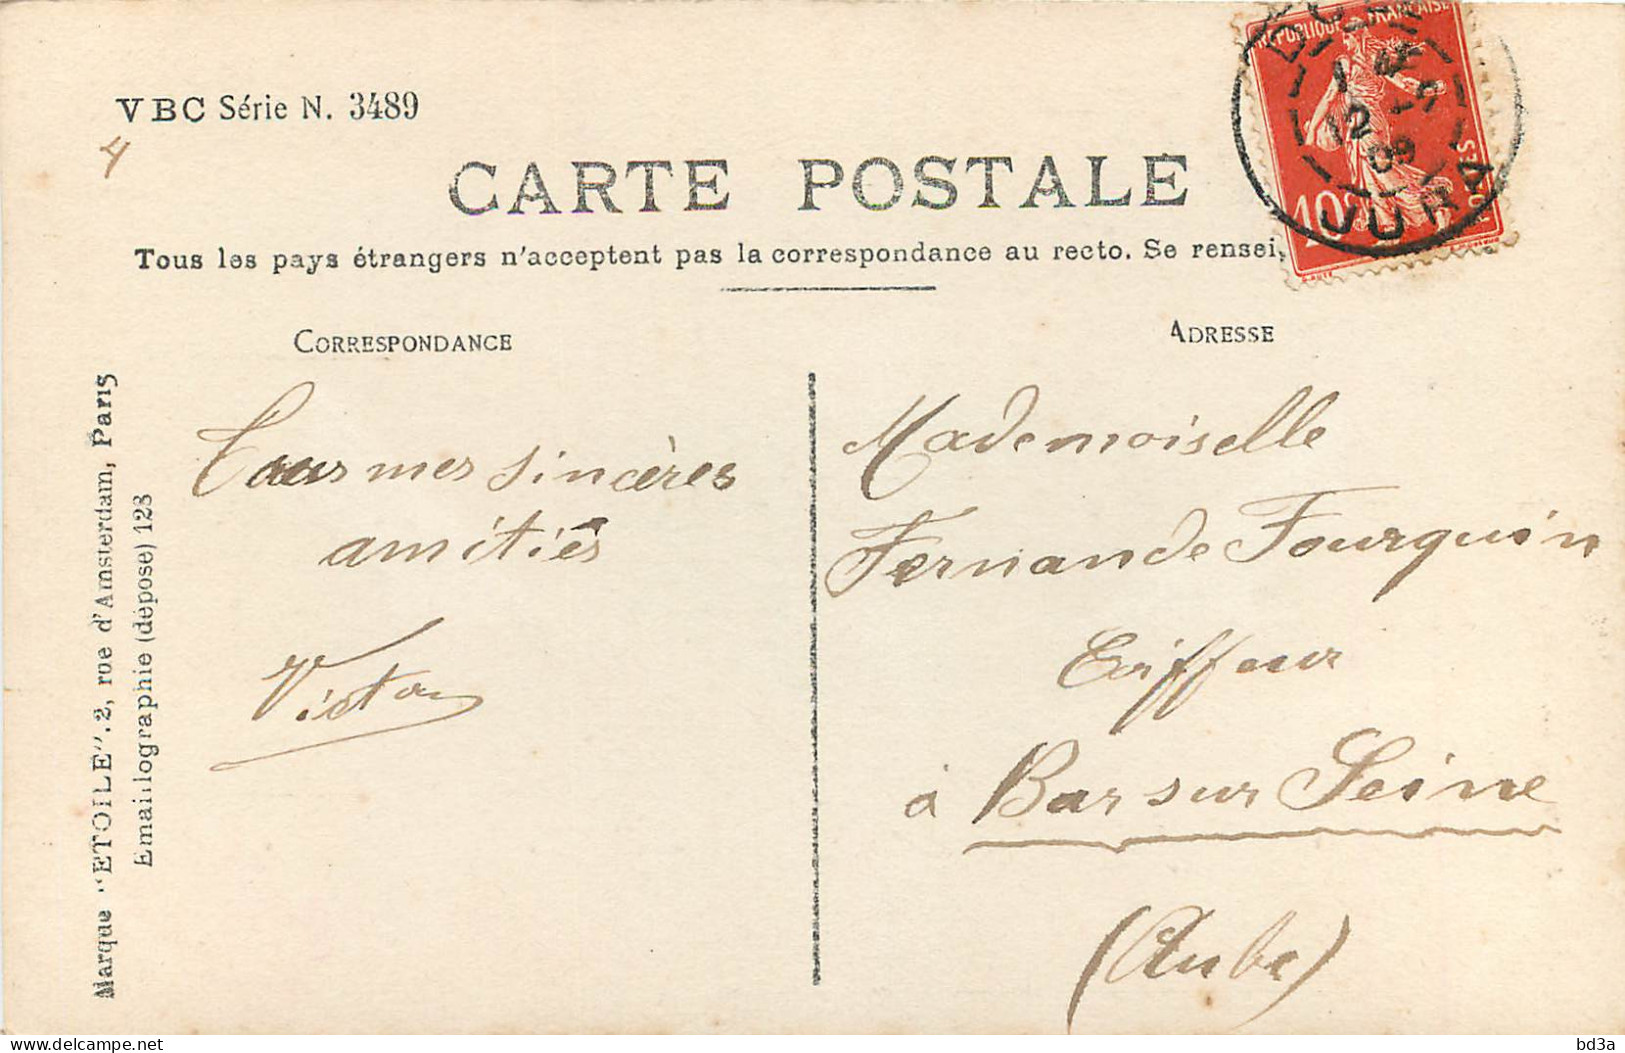 VBC Série N. 3489
4
CARTE POSTALE
Tous les pays étrangers n'acceptent pas la correspondance au recto. Se rensei
CORRESPONDANCE
ADRESSE
REPUBLIQUE FRANÇAISE
10
POSTES
JURA
12
09
Marque "ETOILE". 2, rue d'Amsterdam, Paris
Emaillographie (déposé) 123
Tous mes sincères
amitiés
Victor
Mademoiselle
Fernande Fourquin
à Bar sur Seine
(Aube)
bd3a